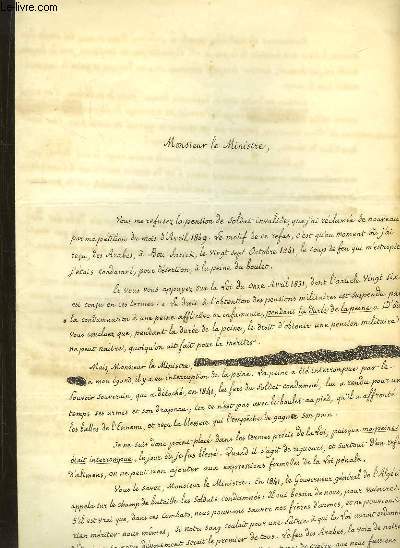 Le-livre.com
Monsieur le Ministre,
Vous me refusez la pension de Soldat invalide, que j'ai réclamée de nouveau
par ma pétition du mois d'Avril 1849. Le motif de ce refus, c'est qu'au moment où j'ai
reçu, des Arabes, à le Vingt Sept Octobre 1841, le coup de feu qui m'estropie
j'étais condamné, pour désertion, à la peine du boulet.
Et vous vous appuyez sur la Loi du Onze Avril 1831, dont l'article Vingt Six
est conçu en ces termes: « Le droit à l'obtention des pensions militaires est suspendu par
la condamnation à une peine afflictive ou infamante, pendant la durée de la peine.
Vous concluez que, pendant la durée de la peine, le droit d'obtenir une pension militaire
ne peut naître, quoiqu'on ait fait pour la mériter.
Mais, Monsieur le Ministre,
à mon égard il y a eu interruption de la peine. Ma peine a été interrompue par le
Pouvoir Souverain, qui a détaché, en 1841, les fers du Soldat condamné, lui a rendu pour un
temps ses armes et son drapeau; car ce n'est pas avec le boulet au pied, qu'il a affronté
les balles de l'Ennemi, et reçu la blessure qui l'empêche de gagner son pain.
Je ne suis donc point placé dans les termes précis de la Loi, puisque ma peine
était interrompue, le jour où je fus blessé. Quand il s'agit de rigueurs, et surtout d'un refus
d'alimens, on ne peut rien ajouter aux expressions formelles de la Loi pénale.
Vous le savez, Monsieur le Ministre. En 1841, le Gouverneur général de l'Algérie
appela sur le champ de bataille les Soldats condamnés: Il eut besoin de nous, pour vaincre.
S'il est vrai que, dans ces combats, nous pouvions sauver nos frères d'armes, et ne pouvions
rien mériter nous mêmes; si notre sang coulait pour une Patrie à qui la Loi aurait ordonné